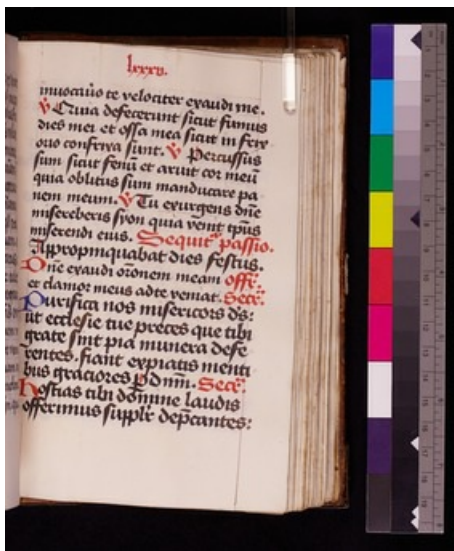 lxxxv.
inuocauero te velociter exaudi me.
℣ Quia defecerunt sicut fumus
dies mei et ossa mea sicut in frix
orio confrixa sunt. ℣ Percussus
sum sicut fenū et aruit cor meū
quia oblitus sum manducare pa
nem meum. ℣ Tu exurgens dn̄e
misereberis syon quia venit tp̄us
miserendi eius. Sequit᷑ passio.
Appropinquabat dies festus.
Dn̄e exaudi or̄onem meam off᷑.
et clamor meus ad te veniat. Secr̄.
Purifica nos misericors ds̄:
ut ecclesie tue preces que tibi
grate sint pia munera defe
rentes. fiant expiatis menti
bus graciores p̄ dnm̄. Secr̄:
Hostias tibi domine laudis
offerimus supplr̄ dep̄cantes: